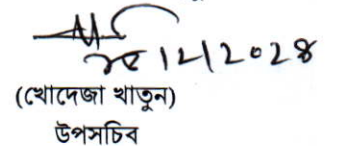 ।২।২০২৪
(খোদেজা খাতুন)
উপসচিব